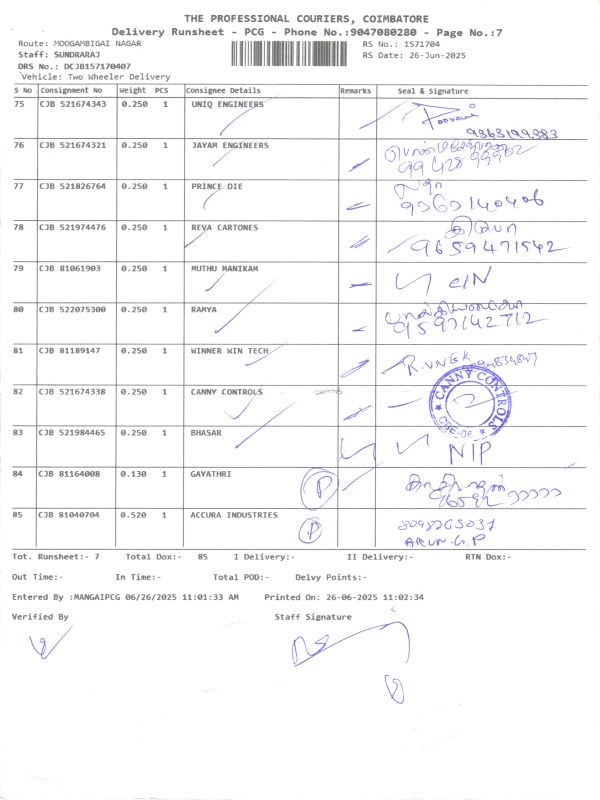 THE PROFESSIONAL COURIERS, COIMBATORE
Delivery Runsheet - PCG - Phone No.:9047080280 - Page No.:7
Route: MOOGAMBIGAI NAGAR RS No.: 1571704
Staff: SUNDRARAJ RS Date: 26-Jun-2025
DRS No.: DCJB157170407
Vehicle: Two Wheeler Delivery
S No Consignment No Weight PCS Consignee Details Remarks Seal & Signature
75 CJB 521674343 0.250 1 UNIQ ENGINEERS
9363199883
76 CJB 521674321 0.250 1 JAYAM ENGINEERS
77 CJB 521826764 0.250 1 PRINCE DIE
78 CJB 521974476 0.250 1 REVA CARTONES
9659471542
79 CJB 81061903 0.250 1 MUTHU MANIKAM
80 CJB 522075300 0.250 1 RAMYA
9597142712
81 CJB 81189147 0.250 1 WINNER WIN TECH
82 CJB 521674338 0.250 1 CANNY CONTROLS ★ CANNY CONTROLS ★
83 CJB 521984465 0.250 1 BHASAR N|P
84 CJB 81164008 0.130 1 GAYATHRI P
85 CJB 81040704 0.520 1 ACCURA INDUSTRIES P
ARUN.G.P
Tot. Runsheet:- 7 Total Dox:- 85 I Delivery:- II Delivery:- RTN Dox:-
Out Time:- In Time:- Total POD:- Delvy Points:-
Entered By :MANGAIPCG 06/26/2025 11:01:33 AM Printed On: 26-06-2025 11:02:34
Verified By Staff Signature